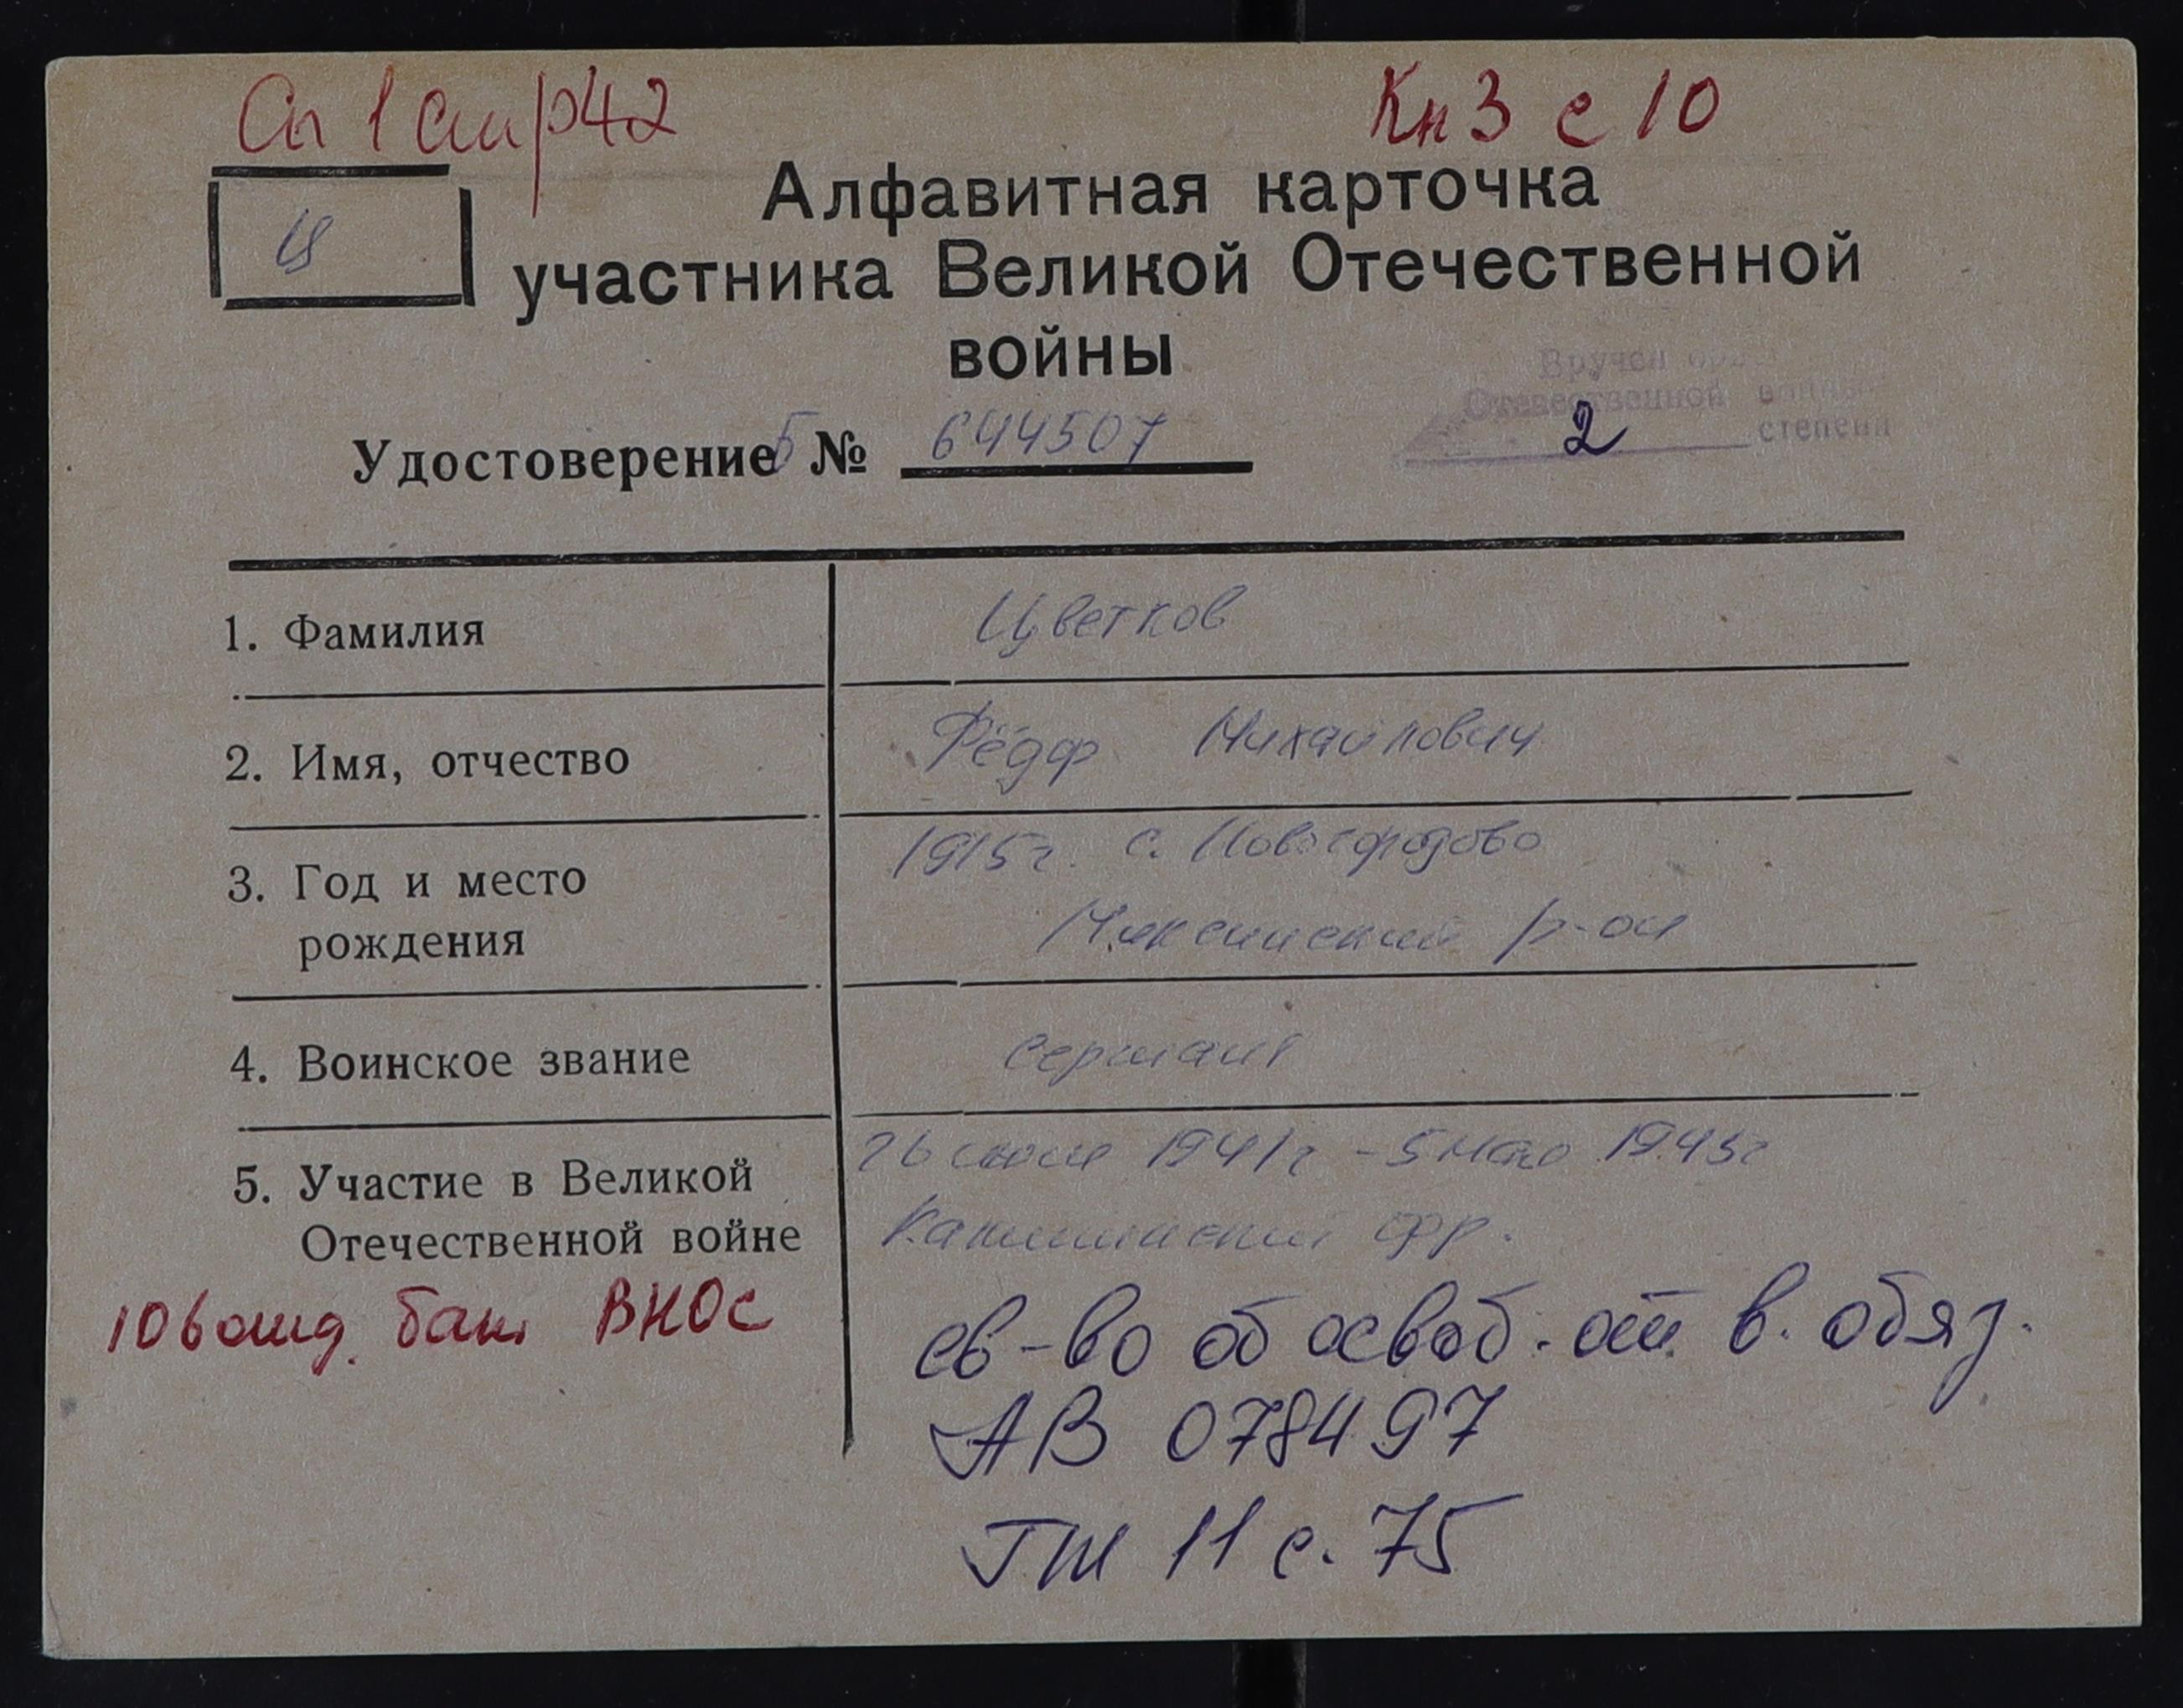 Сп 1 стр42
Кн 3 с 10
Ц
Алфавитная карточка
участника Великой Отечественной
войны
Вручен
Отечественной войны
2 степени
Удостоверение Б № 644507
1. Фамилия Цветков
2. Имя, отчество Фёдор Михайлович
3. Год и место 1915г. с.
рождения р-он
4. Воинское звание сержант
5. Участие в Великой 26 июня 1941г - 5 мая 1943г
Отечественной войне Калининский фр.
106 отд. бат ВНОС
св-во об освоб. от в. обяз.
АВ 078497
ТШ 11 с. 75